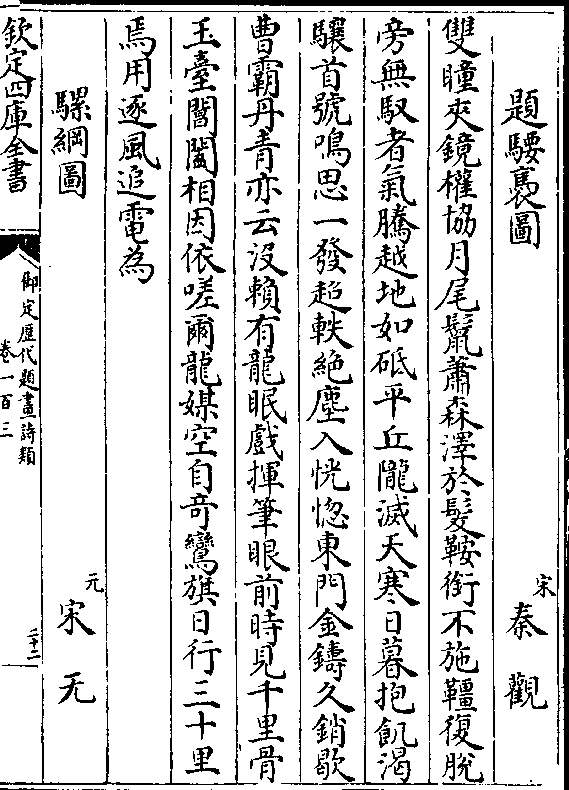 題騕褭圖
宋 秦觀
雙瞳夾鏡權協月尾鬛蕭森澤於髮鞍銜不施韁復脫
旁無馭者氣騰越地如砥平丘隴滅天寒日暮抱飢渴
驤首號鳴思一發超軼絕塵入恍惚東門金鑄久銷歇
曹霸丹青亦云沒賴有龍眠戲揮筆眼前時見千里骨
玉臺閶闔相因依嗟爾龍媒空自竒鸞旗日行三十里
焉用逐風追電為
騾綱圖
元 宋无
欽定四庫全書
御定歷代題畫詩類
卷一百三
二十二